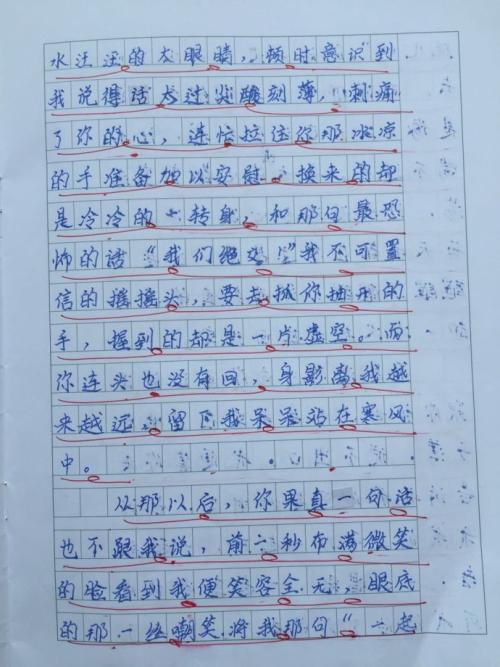 水汪汪的大眼睛，顿时意识到
我说得话太过尖酸刻薄，刺痛
了你的心，连忙拉住你那冰凉
的手准备加以安慰。换来的却
是冷冷的一转身，和那句最恐
怖的话“我们绝交！”我不可置
信的摇摇头，要去抓你抽开的
手，握到的却是一片虚空。而
你连头也没有回，身影离我越
来越远，留下我呆呆站在寒风
中。
从那以后，你果真一句话
也不跟我说，前一秒布满微笑
的脸看到我便笑容全无，眼底
的那一丝嘲笑将我那句“一起